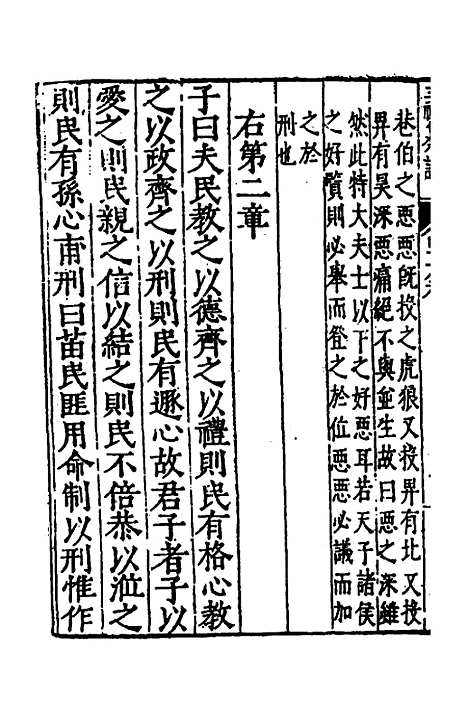 巷伯之惡惡旣投之虎狼又投畀有北又投
畀有昊深惡痛絕不與並生故曰惡之深雖
然此特大夫士以下之好惡耳若天子諸侯
之好賢則必舉而登之於位惡惡必議而加
之於
刑也
右第二章
子曰夫民教之以德齊之以禮則民有格心教
之以政齊之以刑則民有遯心故君子者子以
愛之則民親之信以結之則民不倍恭以涖之
則民有孫心甫刑曰苗民匪用命制以刑惟作